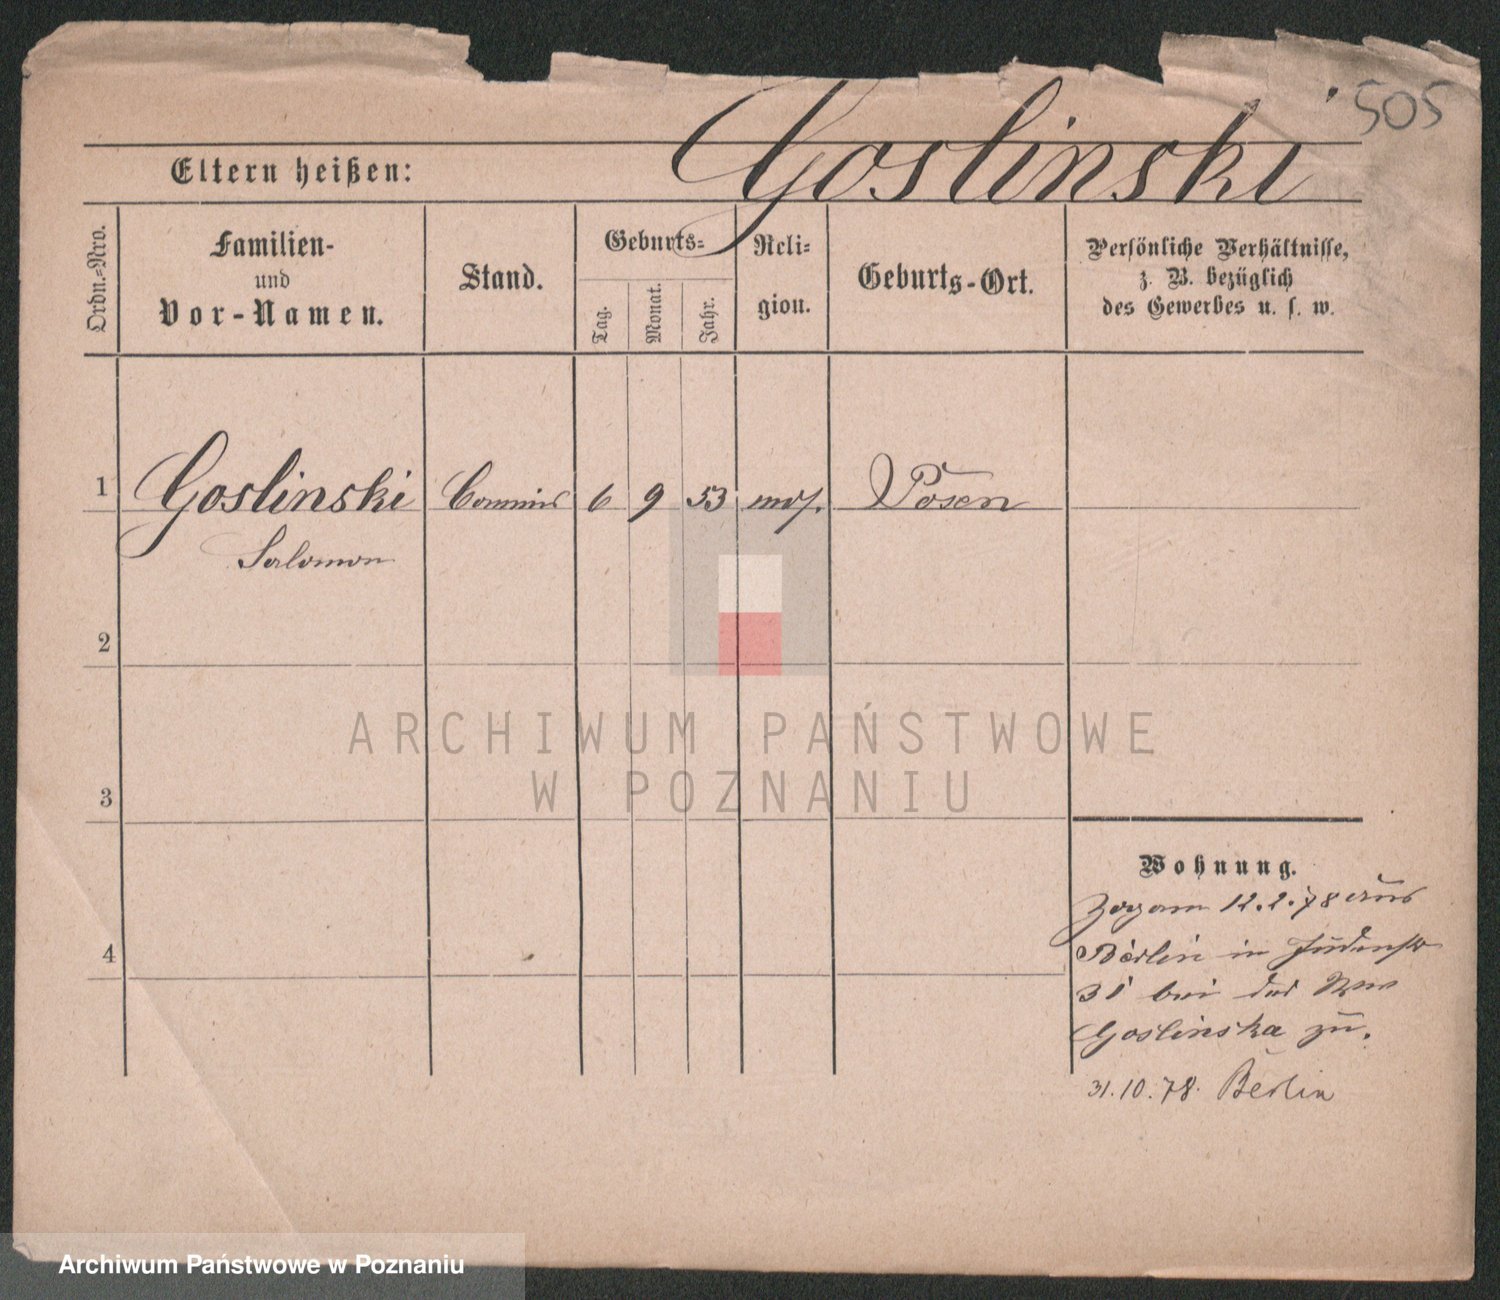 505
Goslinski
Eltern heißen:
Ordn.=Nro.
Familien-
und
Vor-Namen.
Stand.
Geburts=
Tag.
Monat.
Jahr.
Reli=
gion.
Geburts-Ort.
Persönliche Verhältnisse,
z. B. bezüglich
des Gewerbes u. s. w.
1 Goslinski Commis 6 9 53 mos. Posen
Salomon
2
3
4
Wohnung.
Zog am 12.2.78 aus
Berlin in Judenstr
31 bei der Wwe
Goslinska zu.
31.10.78. Berlin
ARCHIWUM PAŃSTWOWE
W POZNANIU
Archiwum Państwowe w Poznaniu